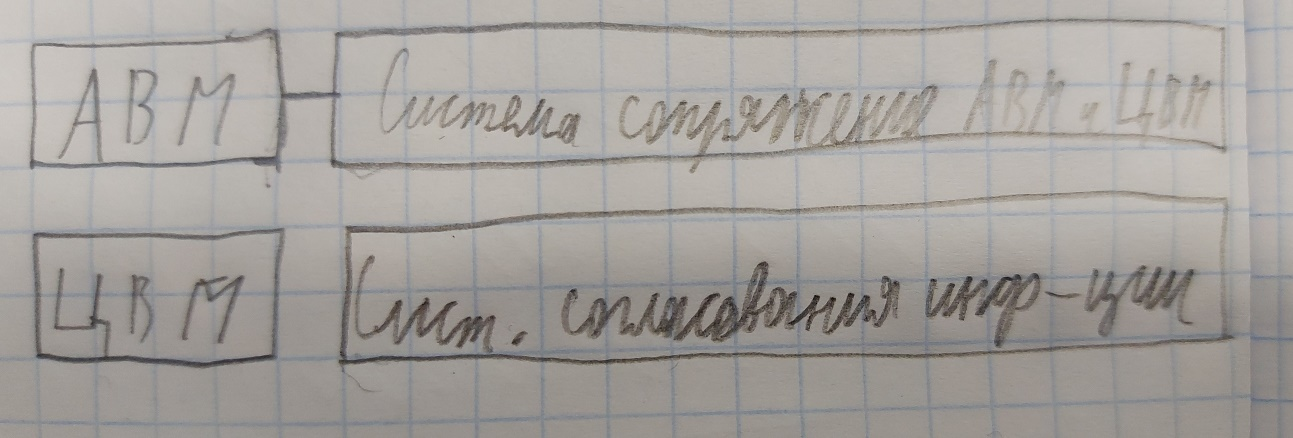 АВМ Система сопряжения АВМ и ЦВМ
ЦВМ Сист. согласования инф-ции